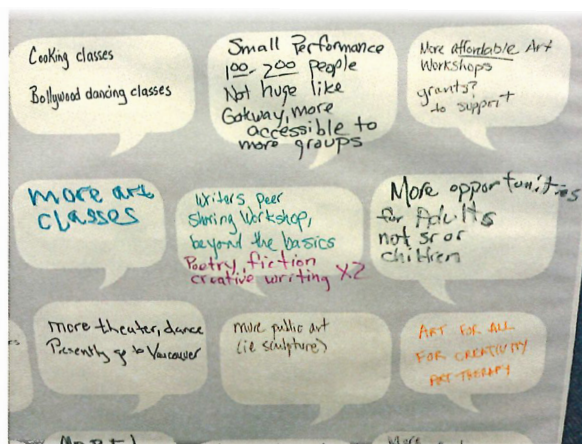 Cooking classes
Bollywood dancing classes
Small Performance
100-200 People
Not huge like
Gateway, more
accessible to
more groups
More affordable Art
Workshops
grants?
to support
more art
classes
Writers peer
sharing Workshop,
beyond the basics
Poetry, fiction
creative writing x2
More opportunities
for Adults
not sr or
children
more theater, dance
Presently go to Vancouver
more public art
(ie sculpture)
ART FOR ALL
FOR CREATIVITY
ART THERAPY
More